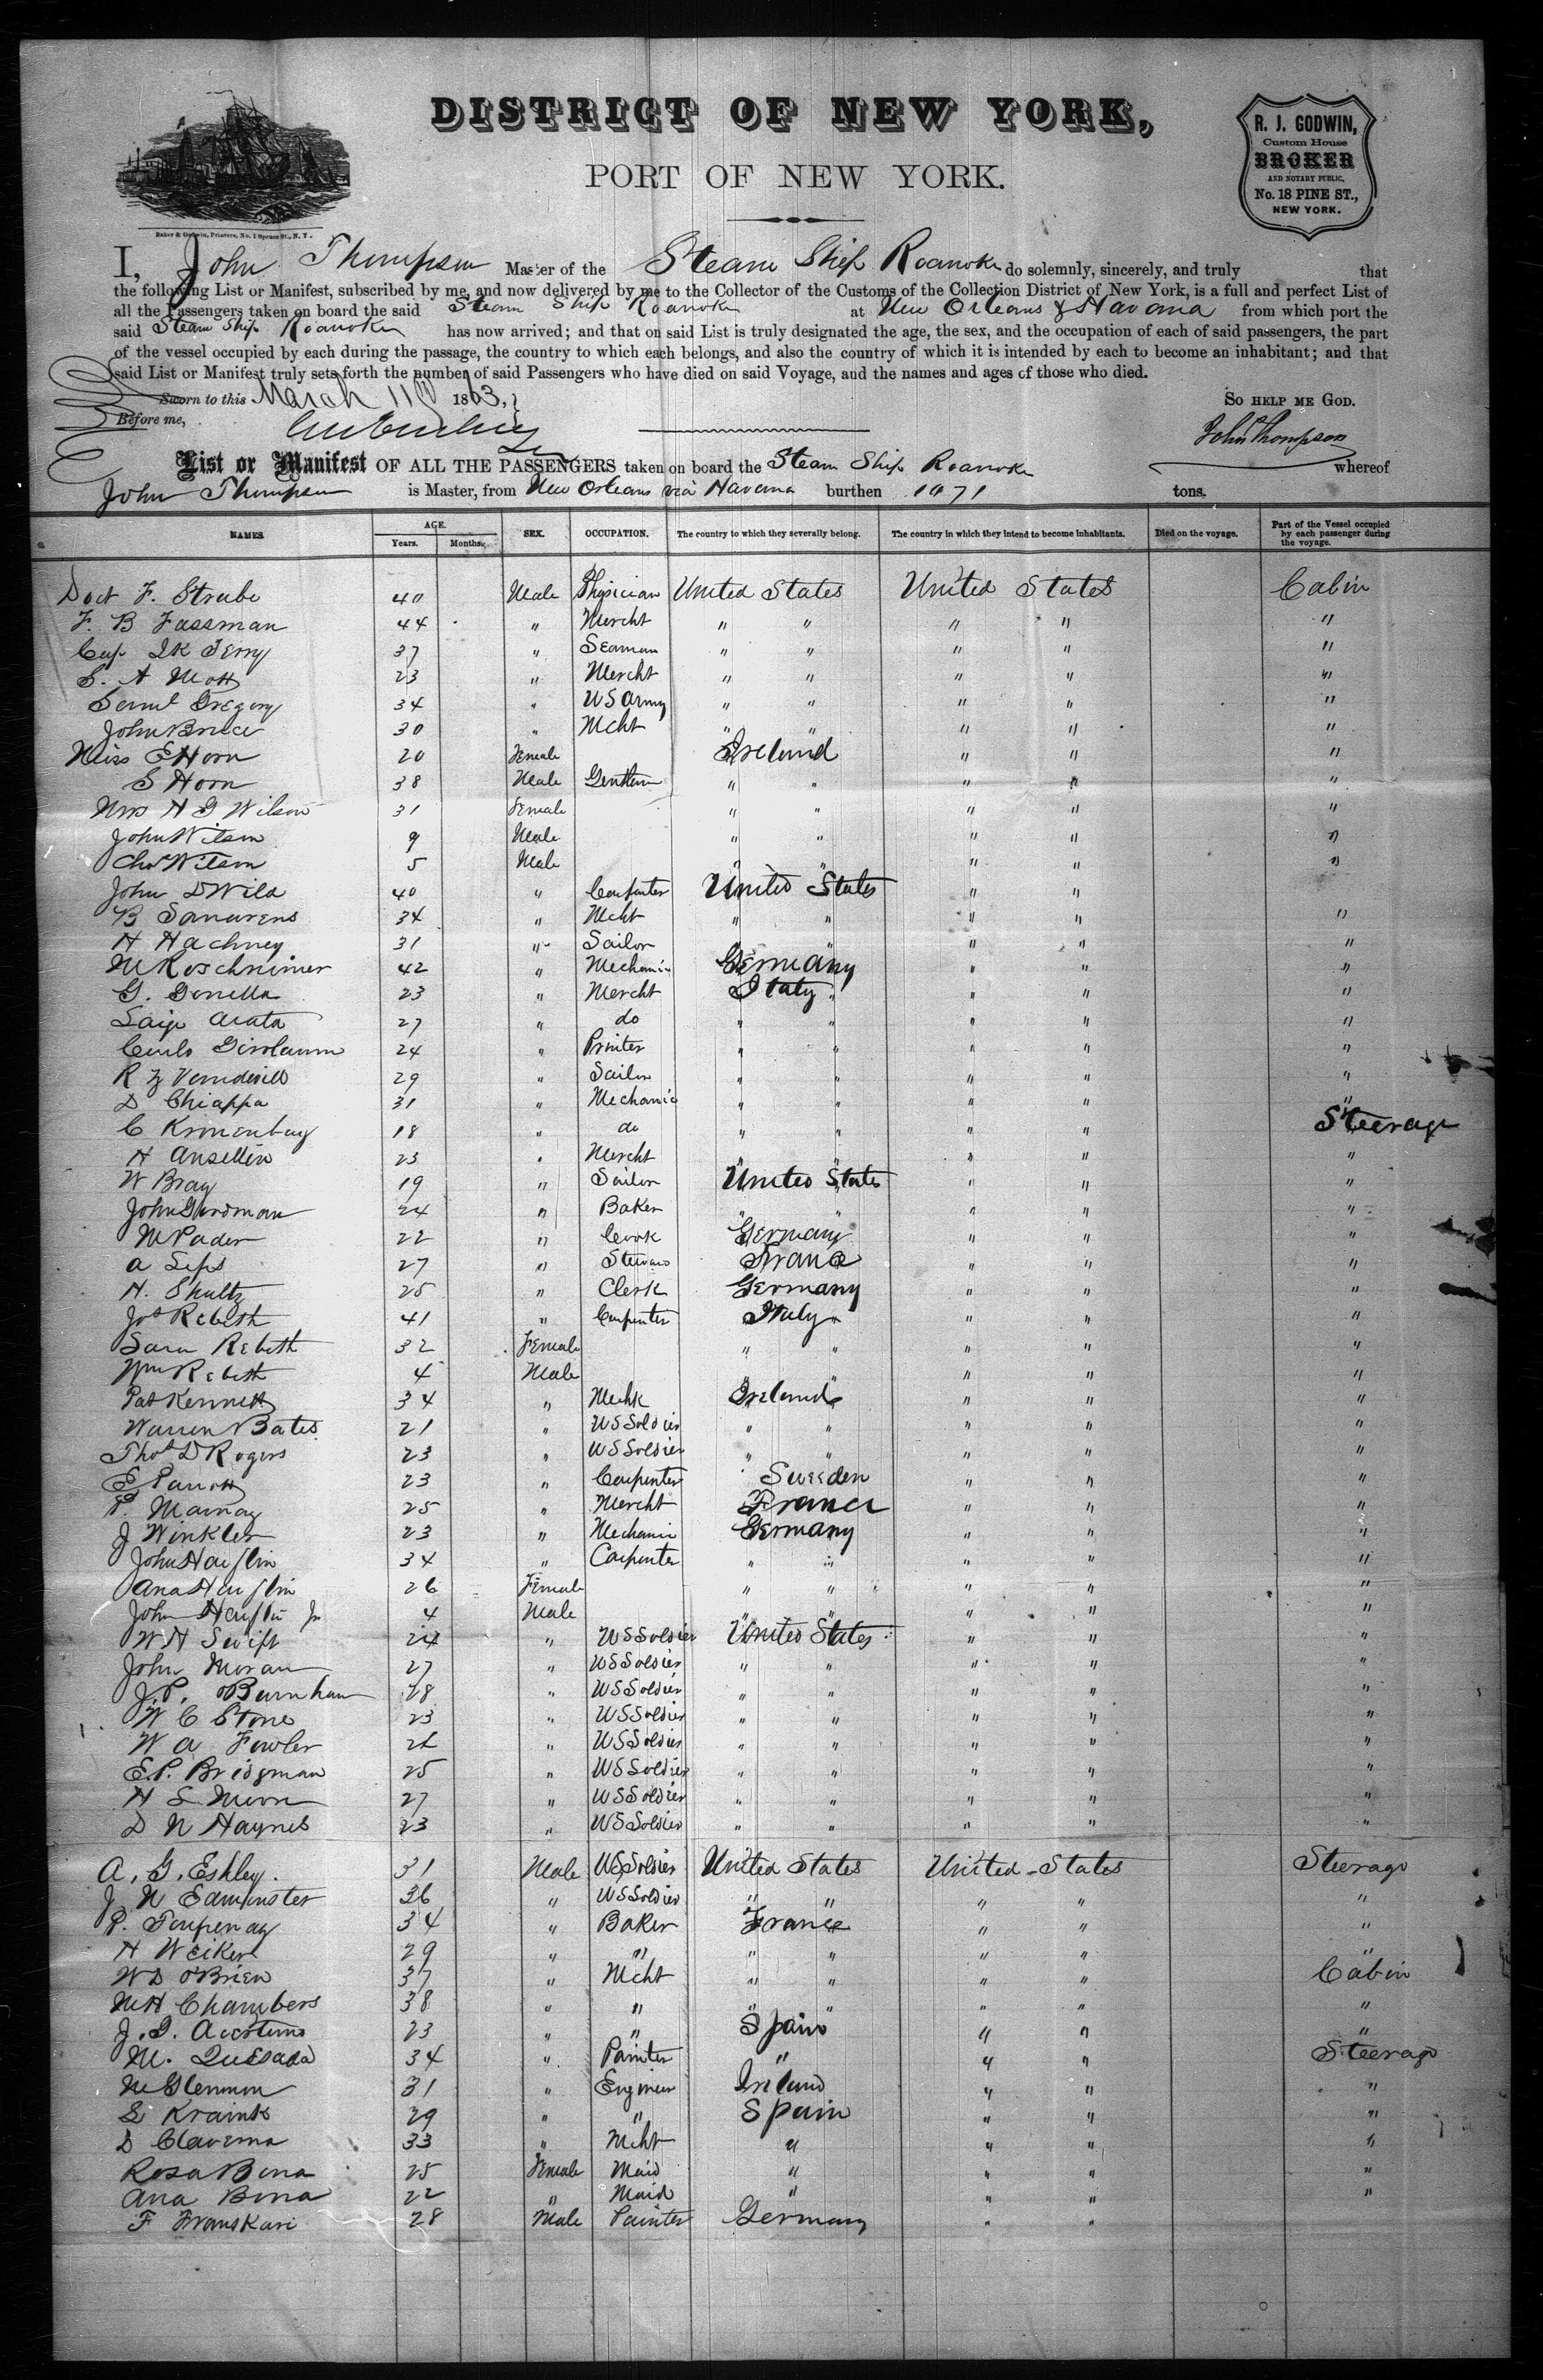 DISTRICT OF NEW YORK,
PORT OF NEW YORK.
R. J. GODWIN,
Custom House
BROKER
AND NOTARY PUBLIC,
No. 18 PINE ST.,
NEW YORK.
Baker & Godwin, Printers, No. 1 Spruce St., N. Y.
I, John Thompson Master of the Steam Ship Roanoke do solemnly, sincerely, and truly that
the following List or Manifest, subscribed by me, and now delivered by me to the Collector of the Customs of the Collection District of New York, is a full and perfect List of
all the Passengers taken on board the said Steam Ship Roanoke at New Orleans & Havana from which port the
said Steam Ship Roanoke has now arrived; and that on said List is truly designated the age, the sex, and the occupation of each of said passengers, the part
of the vessel occupied by each during the passage, the country to which each belongs, and also the country of which it is intended by each to become an inhabitant; and that
said List or Manifest truly sets forth the number of said Passengers who have died on said Voyage, and the names and ages of those who died.
Sworn to this March 11 1863, So help me God.
Before me, John Thompson
List or Manifest OF ALL THE PASSENGERS taken on board the Steam Ship Roanoke whereof
John Thompson is Master, from New Orleans via Havana burthen 1071 tons.
NAMES AGE. Years. Months. SEX. OCCUPATION. The country to which they severally belong. The country in which they intend to become inhabitants. Died on the voyage. Part of the Vessel occupied by each passenger during the voyage.
Doct F. Strube 40 Male Physician United States United States Cabin
F. B Fassman 44 " Mercht " " " " "
Cap J K Terry 37 " Seaman " " " " "
S. A Mott 23 " Mercht " " " " "
Saml Gregory 34 " US Army " " " " "
John Brice 30 " Mcht " " " " "
Miss E Horn 20 Female Ireland " " "
S Horn 38 Male Gentlem " " " " "
Mrs H G Wilson 31 Female " " " " "
John Wilson 9 Male " " " " "
Chas Wilson 5 Male " " " " "
John D Wild 40 " Carpenter United States " "
B Sanarens 34 " Mcht " " " " "
H Hachney 31 " Sailor " " " " "
M Roschnimer 42 " Mechanic Germany " " "
G. Gonella 23 " Mercht Italy " " " "
Luigi Arata 27 " do " " " " "
Carlo Girolaum 24 " Printer " " " " "
R Z 29 " Sailor " " " " "
D Chiappa 31 " Mechanic " " " " "
C Kronenbug 18 " do " " " " Steerage
H Ansellin 23 " Mercht " " " " "
W Bray 19 " Sailor United States " " "
John Gurdman 24 " Baker " " " " "
M Pader 22 " Cook Germany " " "
A Leps 27 " Steward France " " "
H. Shultz 25 " Clerk Germany " " "
Jos Rebeth 41 " Carpenter Italy " " " "
Sara Rebeth 32 Female " " " " "
Wm Rebeth 4 Male " " " " "
Pat Kennett 34 " Ireland " " "
Warren Bates 21 " US Soldier " " " " "
Thos D Rogers 23 " US Soldier " " " " "
E Parrott 23 " Carpenter Sweeden " " "
P. Marnay 25 " Mercht France " " "
J Winkler 23 " Mechanic Germany " " "
John Hauflin 34 " Carpenter " " " " "
Ana Hauflin 26 Female " " " " "
John Hauflin Jr 4 Male " " " " "
W H Swift 24 " US Soldier United States " " "
John Moran 27 " US Soldier " " " " "
J. P. Burnham 28 " US Soldier " " " " "
W C Stone 23 " US Soldier " " " " "
W A Fowler 26 " US Soldier " " " " "
E. P. Bridgman 25 " US Soldier " " " " "
H S Munn 27 " US Soldier " " " " "
D N Haynes 23 " US Soldier " " " " "
A. G. Eshley. 31 Male US Soldier United States United States Steerage
J N Edminster 36 " US Soldier " " " " "
P. Toupenay 34 " Baker France " " "
H Weiker 29 " " " " " " "
W D O'Brien 37 " Mcht " " " " Cabin
M H Chambers 38 " " " " " " "
J. G. 23 " " Spain " " "
M. Quesada 34 " Painter " " " Steerage
M Glennon 31 " Engineer Ireland " " "
S Kraink 29 " " Spain " " "
D Claverna 33 " Mcht " " " "
Rosa Bona 25 Female Maid " " " "
Ana Bona 22 " Maid " " " "
F Franskari 28 Male Painter Germany " "